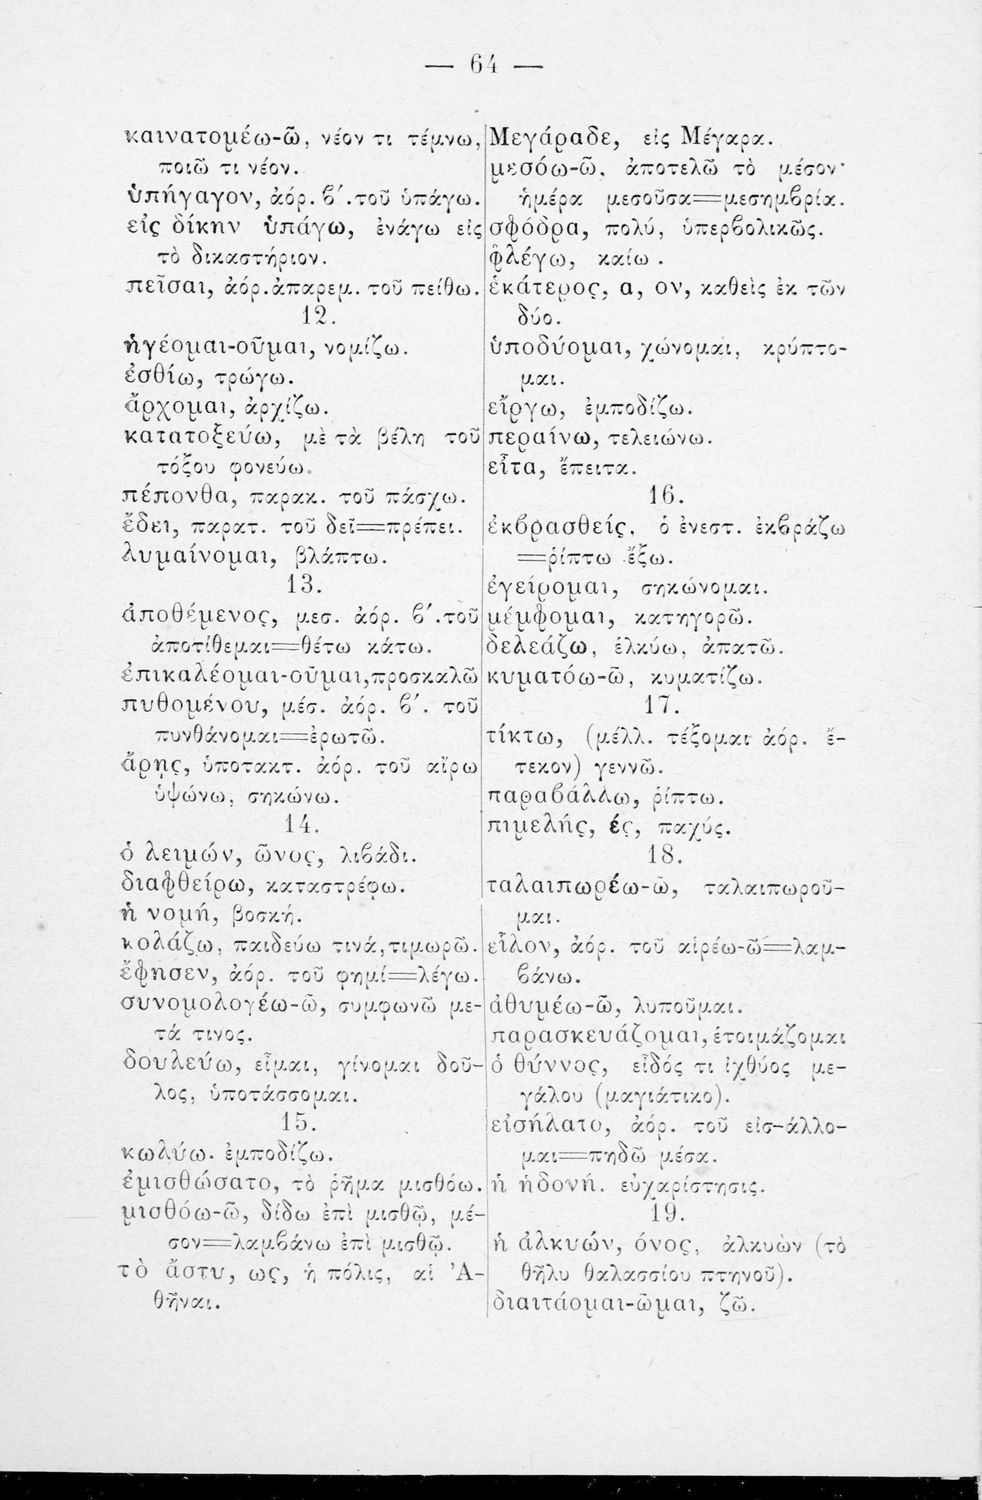 — 64 —
καινατομέω-ῶ, νέον τι τέμνω,
ποιῶ τι νέον.
ὑπήγαγον, ἀόρ. ϐ΄. τοῦ ὑπάγω.
εἰς δίκην ὑπάγω, ἐνάγω εἰς
τὸ δικαστήριον.
πεῖσαι, ἀόρ. ἀπαρεμ. τοῦ πείθω.
12.
ἡγέομαι-οῦμαι, νομίζω.
ἐσθίω, τρώγω.
ἄρχομαι, ἀρχίζω.
κατατοξεύω, μὲ τὰ βέλη τοῦ
τόξου φονεύω.
πέπονθα, παρακ. τοῦ πάσχω.
ἔδει, παρατ. τοῦ δεῖ=πρέπει.
λυμαίνομαι, βλάπτω.
13.
ἀποθέμενος, μεσ. ἀόρ. ϐ΄. τοῦ
ἀποτίθεμαι=θέτω κάτω.
ἐπικαλέομαι-οῦμαι, προσκαλῶ
πυθομένου, μέσ. ἀόρ. ϐ΄. τοῦ
πυνθάνομαι=ἐρωτῶ.
ἄρῃς, ὑποτακτ. ἀόρ. τοῦ αἴρω
ὑψώνω, σηκώνω.
14.
ὁ λειμών, ῶνος, λιϐάδι.
διαφθείρω, καταστρέφω.
ἡ νομή, βοσκή.
κολάζω, παιδεύω τινά, τιμωρῶ.
ἔφησεν, ἀόρ. τοῦ φημί=λέγω.
συνομολογέω-ῶ, συμφωνῶ με-
τά τινος.
δουλεύω, εἶμαι, γίνομαι δοῦ-
λος, ὑποτάσσομαι.
15.
κωλύω. ἐμποδίζω.
ἐμισθώσατο, τὸ ῥῆμα μισθόω.
μισθόω-ῶ, δίδω ἐπὶ μισθῷ, μέ-
σον=λαμϐάνω ἐπὶ μισθῷ.
τὸ ἄστυ, ως, ἡ πόλις, αἱ Ἀ-
θῆναι.
Μεγάραδε, εἰς Μέγαρα.
μεσόω-ῶ, ἀποτελῶ τὸ μέσον·
ἡμέρα μεσοῦσα=μεσημϐρία.
σφόδρα, πολύ, ὑπερϐολικῶς.
φλέγω, καίω.
ἑκάτερος, α, ον, καθεὶς ἐκ τῶν
δύο.
ὑποδύομαι, χώνομαι, κρύπτο-
μαι.
εἴργω, ἐμποδίζω.
περαίνω, τελειώνω.
εἶτα, ἔπειτα.
16.
ἐκϐρασθείς, ὁ ἐνεστ. ἐκϐράζω
=ῥίπτω ἔξω.
ἐγείρομαι, σηκώνομαι.
μέμφομαι, κατηγορῶ.
δελεάζω, ἑλκύω, ἀπατῶ.
κυματόω-ῶ, κυματίζω.
17.
τίκτω, (μέλλ. τέξομαι ἀόρ. ἔ-
τεκον) γεννῶ.
παραϐάλλω, ῥίπτω.
πιμελής, ές, παχύς.
18.
ταλαιπωρέω-ῶ, ταλαιπωροῦ-
μαι.
εἷλον, ἀόρ. τοῦ αἱρέω-ῶ=λαμ-
ϐάνω.
ἀθυμέω-ῶ, λυποῦμαι.
παρασκευάζομαι, ἑτοιμάζομαι
ὁ θύννος, εἶδός τι ἰχθύος με-
γάλου (μαγιάτικο).
εἰσήλατο, ἀόρ. τοῦ εἰσ-άλλο-
μαι=πηδῶ μέσα.
ἡ ἡδονή. εὐχαρίστησις.
19.
ἡ ἀλκυών, όνος, ἀλκυὼν (τὸ
θῆλυ θαλασσίου πτηνοῦ).
διαιτάομαι-ῶμαι, ζῶ.